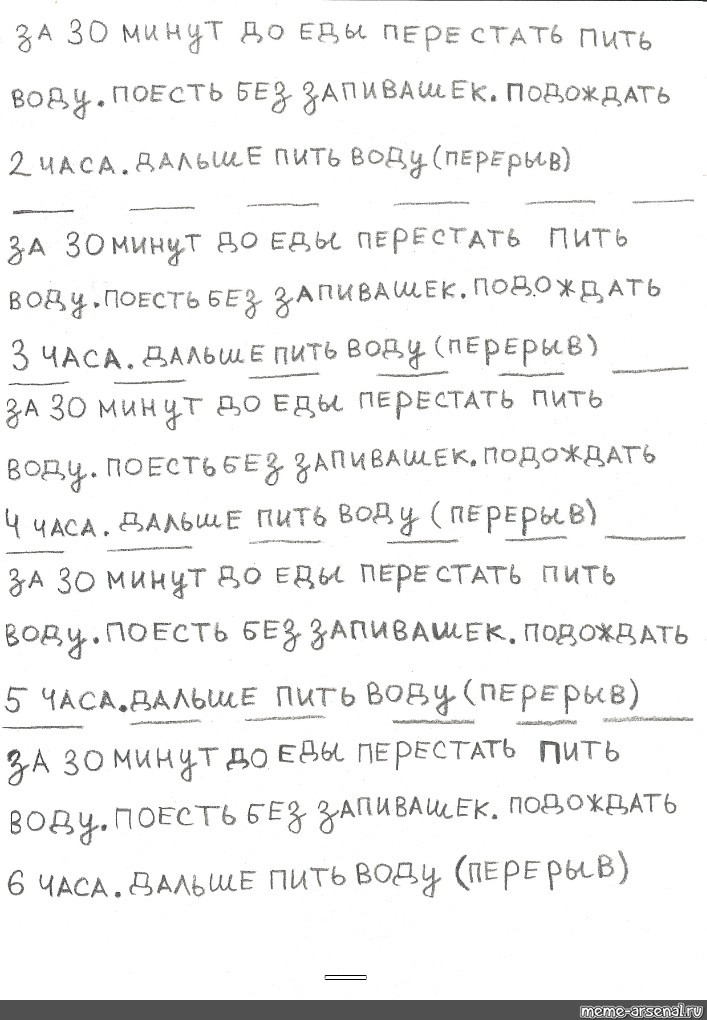 ЗА 30 МИНУТ ДО ЕДЫ ПЕРЕСТАТЬ ПИТЬ
ВОДУ. ПОЕСТЬ БЕЗ ЗАПИВАШЕК. ПОДОЖДАТЬ
2 ЧАСА. ДАЛЬШЕ ПИТЬ ВОДУ (ПЕРЕРЫВ)
ЗА 30 МИНУТ ДО ЕДЫ ПЕРЕСТАТЬ ПИТЬ
ВОДУ. ПОЕСТЬ БЕЗ ЗАПИВАШЕК. ПОДОЖДАТЬ
3 ЧАСА. ДАЛЬШЕ ПИТЬ ВОДУ (ПЕРЕРЫВ)
ЗА 30 МИНУТ ДО ЕДЫ ПЕРЕСТАТЬ ПИТЬ
ВОДУ. ПОЕСТЬ БЕЗ ЗАПИВАШЕК. ПОДОЖДАТЬ
4 ЧАСА. ДАЛЬШЕ ПИТЬ ВОДУ (ПЕРЕРЫВ)
ЗА 30 МИНУТ ДО ЕДЫ ПЕРЕСТАТЬ ПИТЬ
ВОДУ. ПОЕСТЬ БЕЗ ЗАПИВАШЕК. ПОДОЖДАТЬ
5 ЧАСА. ДАЛЬШЕ ПИТЬ ВОДУ (ПЕРЕРЫВ)
ЗА 30 МИНУТ ДО ЕДЫ ПЕРЕСТАТЬ ПИТЬ
ВОДУ. ПОЕСТЬ БЕЗ ЗАПИВАШЕК. ПОДОЖДАТЬ
6 ЧАСА. ДАЛЬШЕ ПИТЬ ВОДУ (ПЕРЕРЫВ)
meme-arsenal.ru